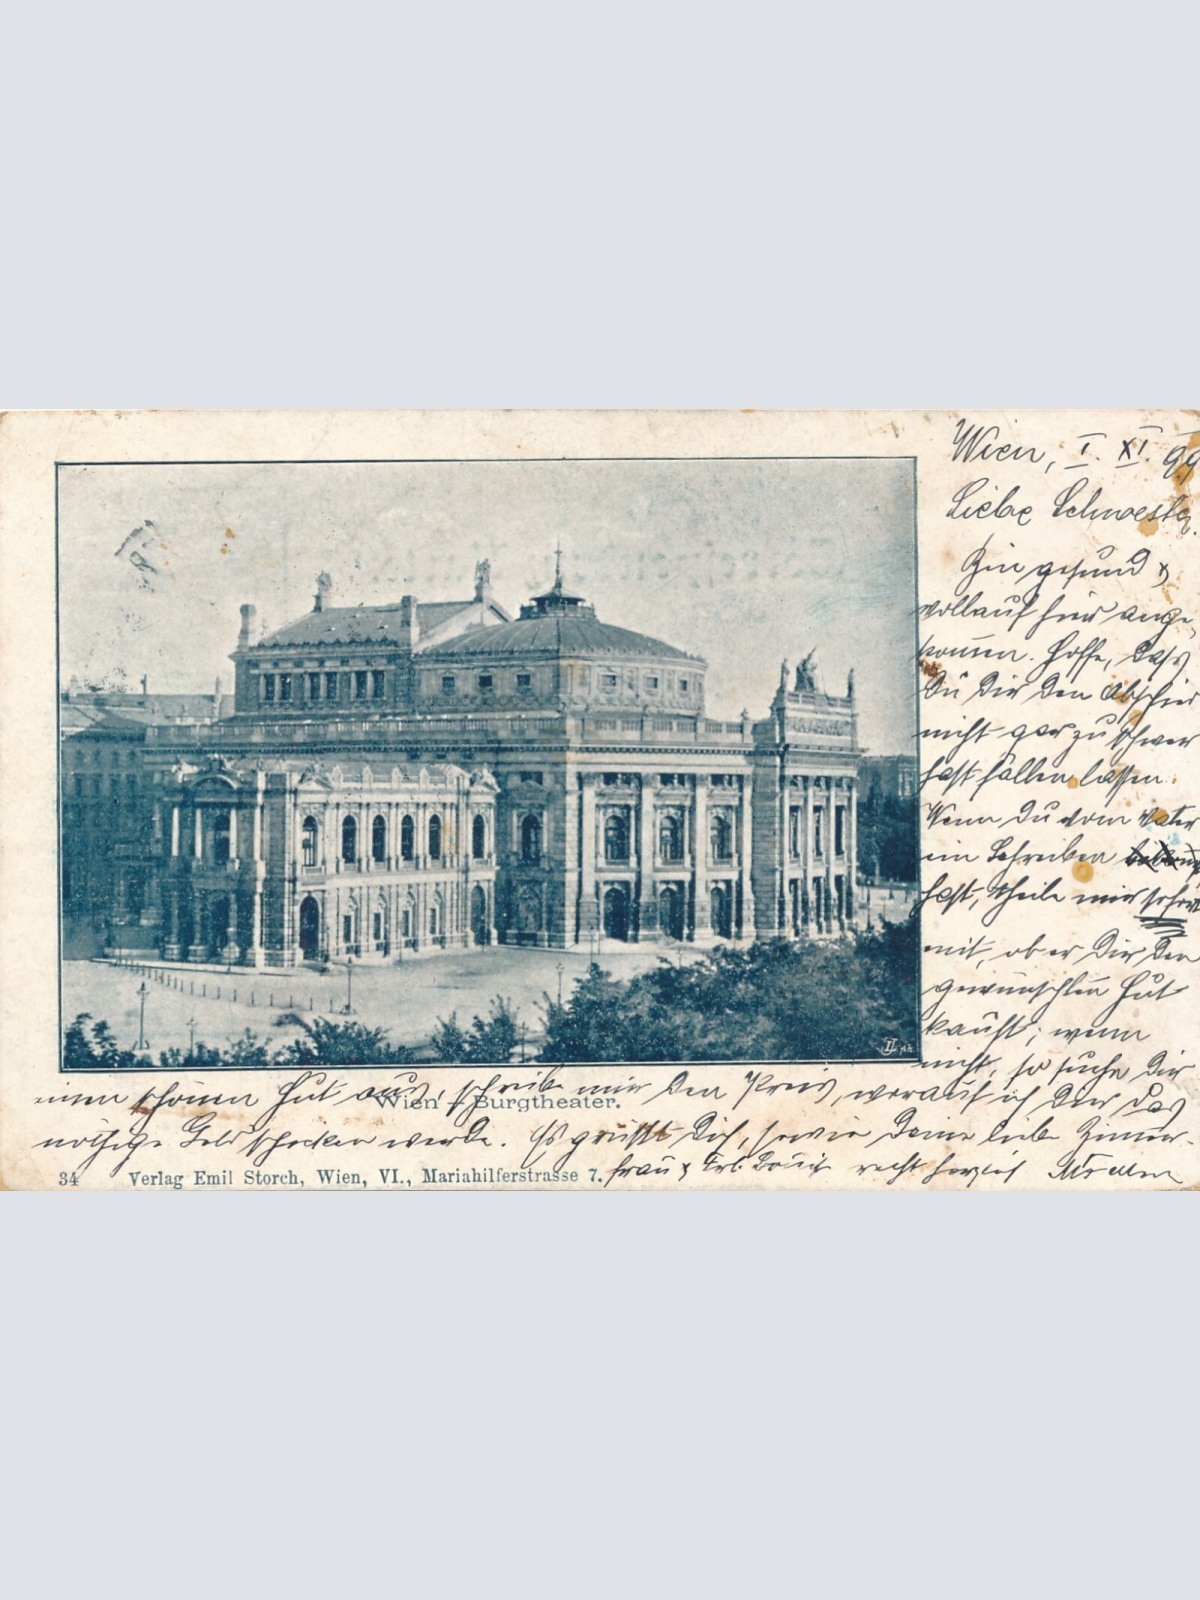 Wien, I. XI. 99
Liebe Schwester.
Bin gesund &
vollauf hier ange-
kom̄en. Hoffe, dass
Du Dir den Abschied
nicht gar zu schwer
hast fallen lassen.
Wenn Du vom Vater
ein Schreiben
hast, theile mir sofort
mit, ob er Dir den
gewünschten Hut
kauft; wenn
nicht, so suche Dir
einen schönen Hut aus, schreibe mir den Preis, worauf ich Dir das
Wien – Burgtheater.
nöthige Geld schicken werde. Es grüsst Dich, sowie Deine liebe Zimmer-
frau & Frl. recht herzlich
34 Verlag Emil Storch, Wien, VI., Mariahilferstrasse 7.